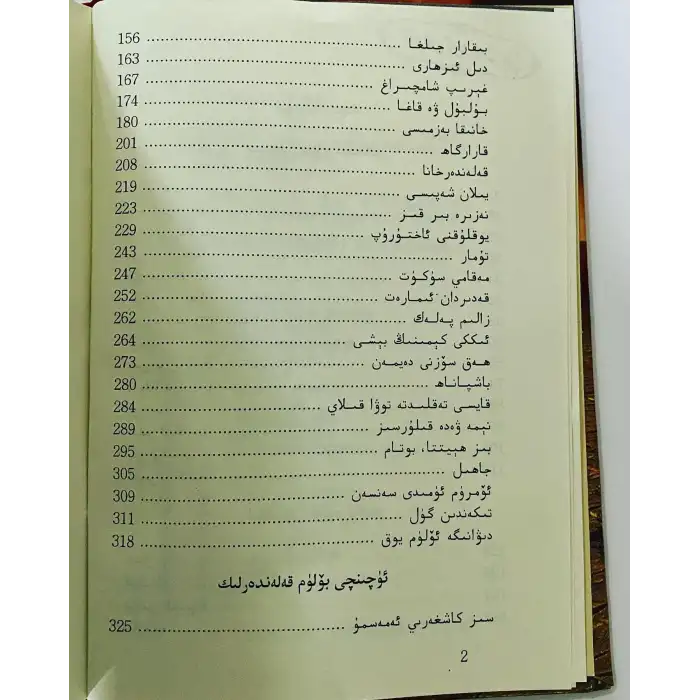 بىقارار جىلغا ........ 156
دىل ئىزھارى ........ 163
غېرىپ شامچىراغ ........ 167
بۇلبۇل ۋە قاغا ........ 174
خانىقا بەزمىسى ........ 180
قارارگاھ ........ 201
قەلەندەرخانا ........ 208
يىلان شەپىسى ........ 219
نەزىرە بىر قىز ........ 223
يوقلۇقنى ئاختۇرۇپ ........ 229
تۇمار ........ 243
مەقامي سۈكۈت ........ 247
قەدىردان ئىمارەت ........ 252
زالىم پەلەك ........ 262
ئىككى كېمىنىڭ بېشى ........ 264
ھەق سۆزنى دەيمەن ........ 273
باشپاناھ ........ 280
قايسى تەقلىدتە توۋا قىلاي ........ 284
نېمە ۋەدە قىلۇرسىز ........ 289
بىز ھېيتتا، بوتام ........ 295
جاھىل ........ 305
ئۆمرۈم ئۈمىدى سەنسەن ........ 309
تىكەندىن گۈل ........ 311
دىۋانىگە ئۆلۈم يوق ........ 318
ئۈچىنچى بۆلۈم قەلەندەرلىك
سىز كاشغەرىي ئەمەسمۇ ........ 325
2